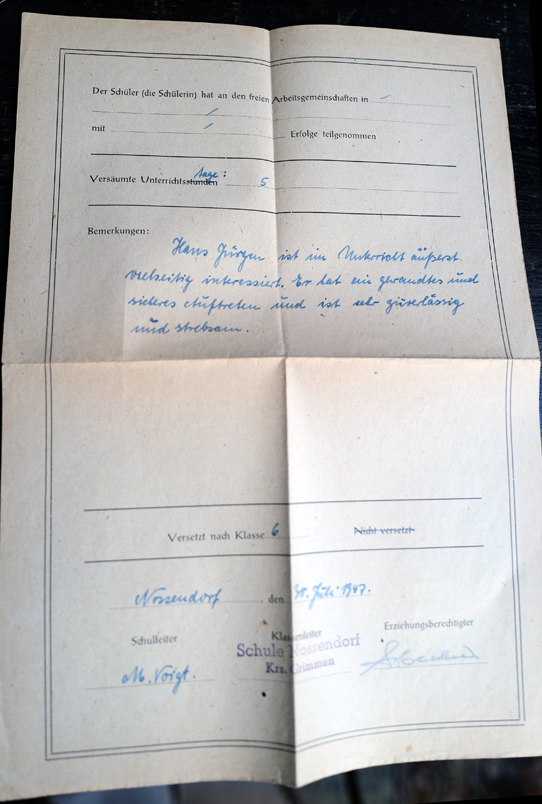 Der Schüler (die Schülerin) hat an den freien Arbeitsgemeinschaften in /
/
mit / Erfolge teilgenommen
tage:
Versäumte Unterrichtsstunden 5
Bemerkungen:
Hans Jürgen ist im Unterricht äußerst
vielseitig interessiert. Er hat ein gewandtes und
sicheres Auftreten und ist sehr zuverlässig
und strebsam.
Versetzt nach Klasse 6 Nicht versetzt
Nossendorf, den Juli 1947.
Schulleiter Klassenleiter Erziehungsberechtigter
Schule Nossendorf
Krs. Grimmen
M. Voigt.